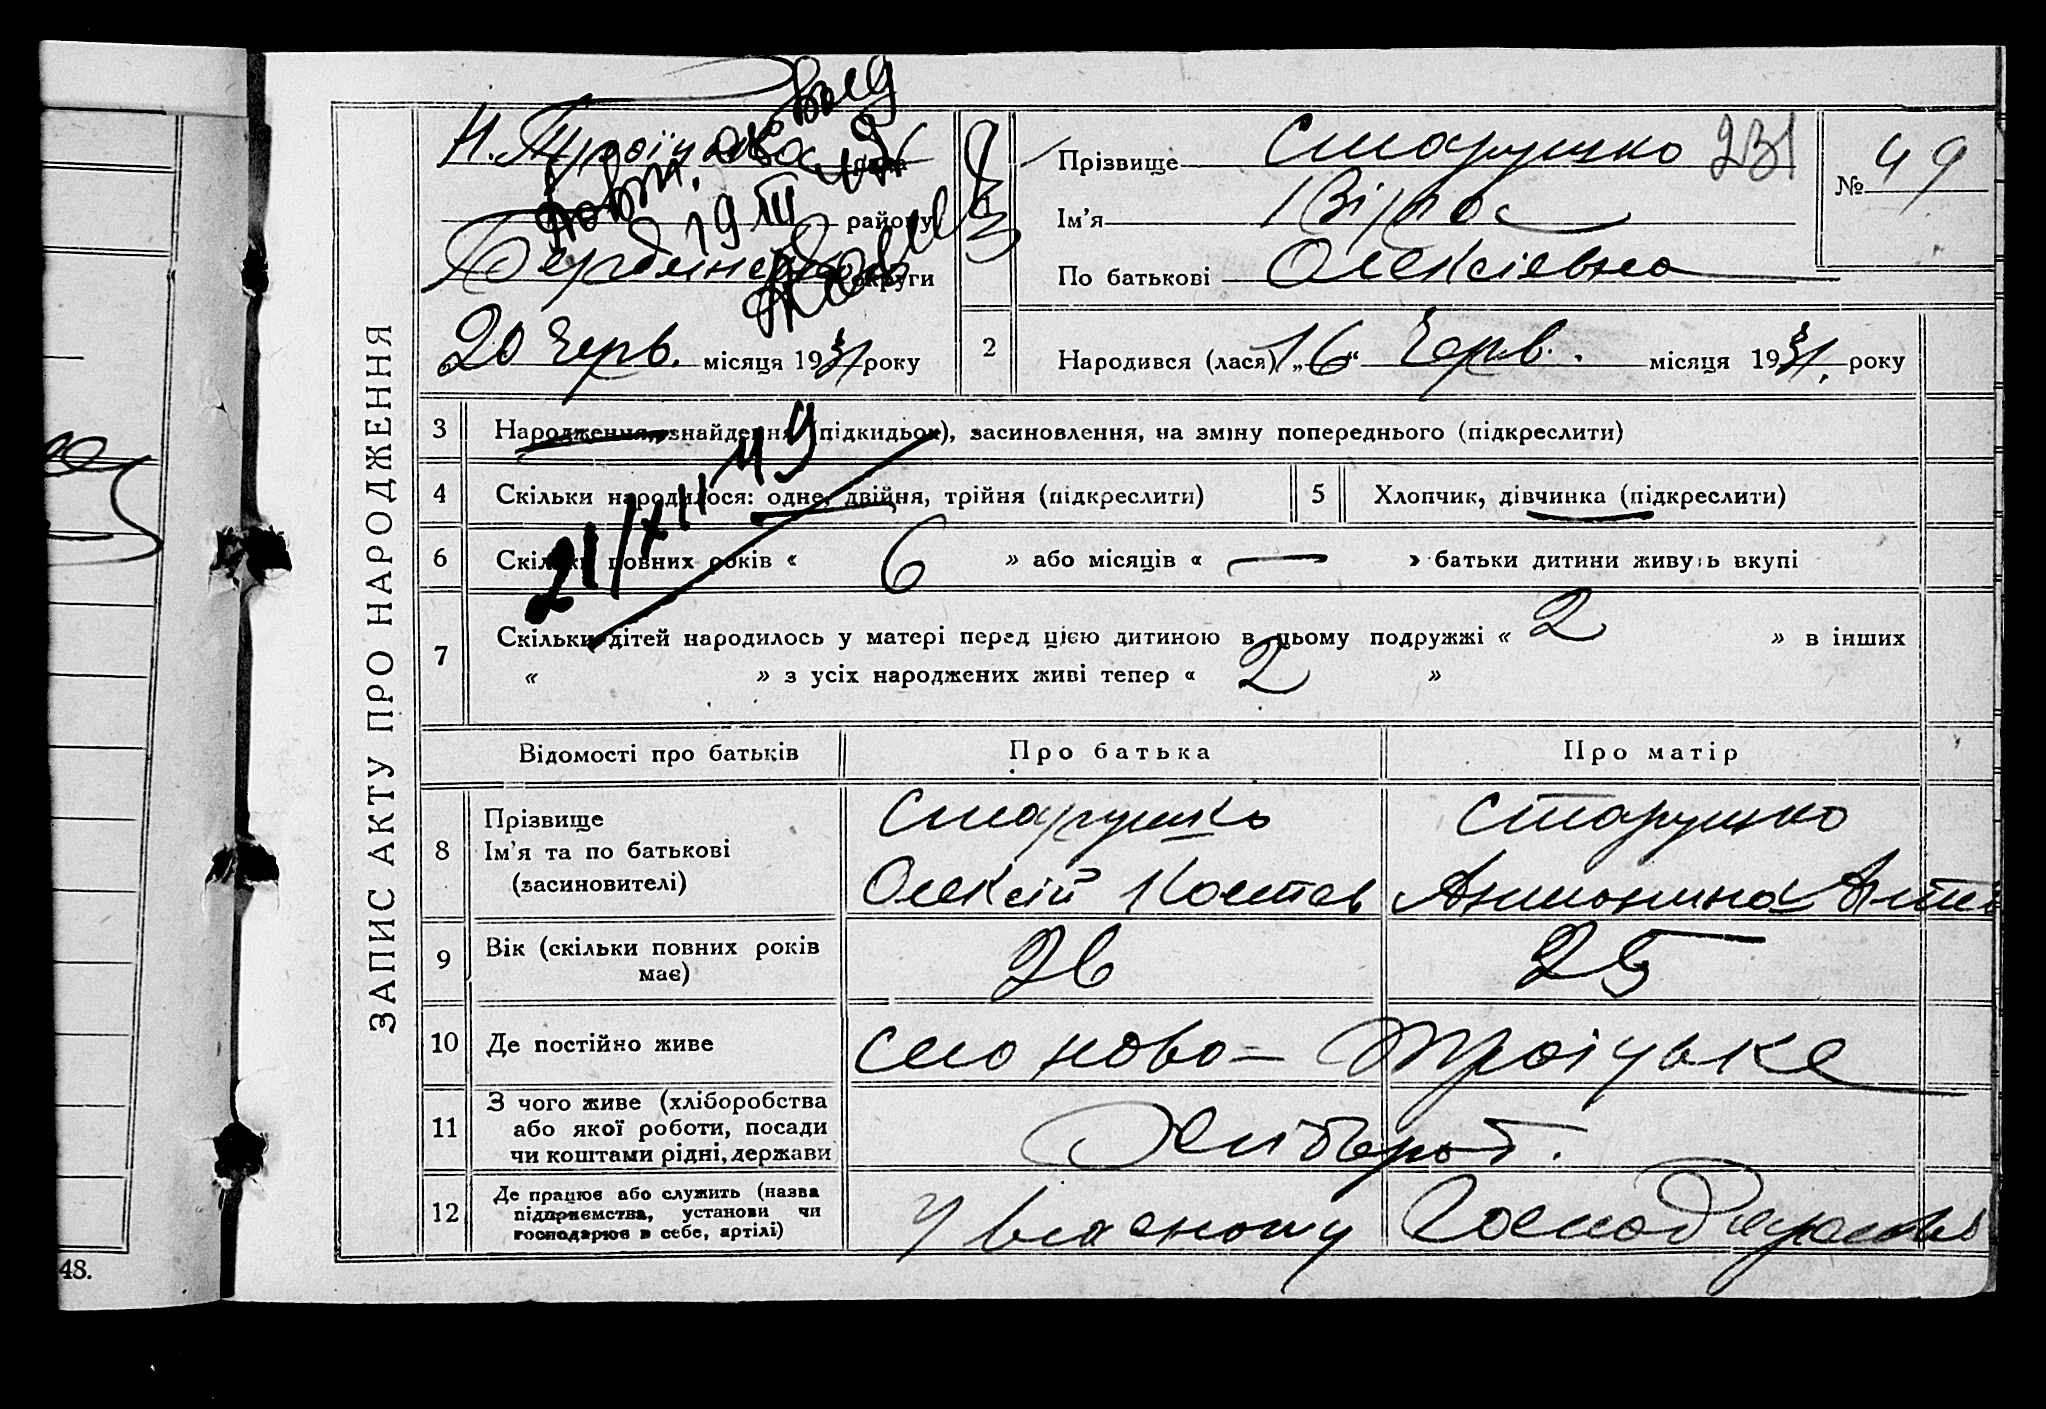 ЗАПИС АКТУ ПРО НАРОДЖЕННЯ
Н. Троїцька рада
району
Бердянської округи
20 Черв. місяця 1931 року
повт.
19 III
1
Прізвище Старушко 231
Ім'я Віра
По батькові Олексіевна
№ 49
2 Народився (лася) „16“ Черв. місяця 1931 року
3 Народження, знайдення (підкидьок), засиновлення, на зміну попереднього (підкреслити)
21/XII 49
4 Скільки народилося: одне, двійня, трійня (підкреслити)
5 Хлопчик, дівчинка (підкреслити)
6 Скільки повних років « 6 » або місяців « — » батьки дитини живуть вкупі
7 Скільки дітей народилось у матері перед цією дитиною в цьому подружжі « 2 » в інших
« » з усіх народжених живі тепер « 2 »
Відомості про батьків Про батька Про матір
8 Прізвище
Ім'я та по батькові
(засиновителі)
Старушко
Олексій Костев
Старушко
Антонина
9 Вік (скільки повних років
має)
26 25
10 Де постійно живе село ново-Троіцьке
11 З чого живе (хліборобства
або якої роботи, посади
чи коштами рідні, держави
Хлібороб.
12 Де працює або служить (назва
підприємства, установи чи
господарює в себе, артілі)
У власному Господарстві
48.